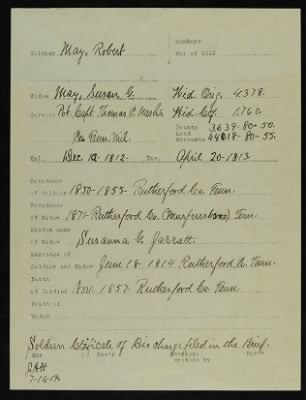 Numbers
Soldier May, Robert War of 1812
Widow May, Susan G. Wid. Orig. 4.378.
Service Pvt Capt Thomas Wid. Ctf. 1.760
Ten. Mil. Bounty 3639-80-50.
Land
Warrants 44018-80-55.
Enl. Dec 10-1812- Dis. April 20-1813
Residence
of Soldier 1850-1855- Rutherford Co. Tenn.
Residence
of Widow 1871- Rutherford Co. (Murfreesboro) Tenn.
Maiden name
of Widow Susanna G. Jarratt.
Marriage of
Soldier and Widow June 18-1814 Rutherford Co. Tenn.
Death
of Soldier Nov. 1857- Rutherford Co Tenn.
Death of
Widow
Soldiers Certificate of Discharge filed in the Brief.